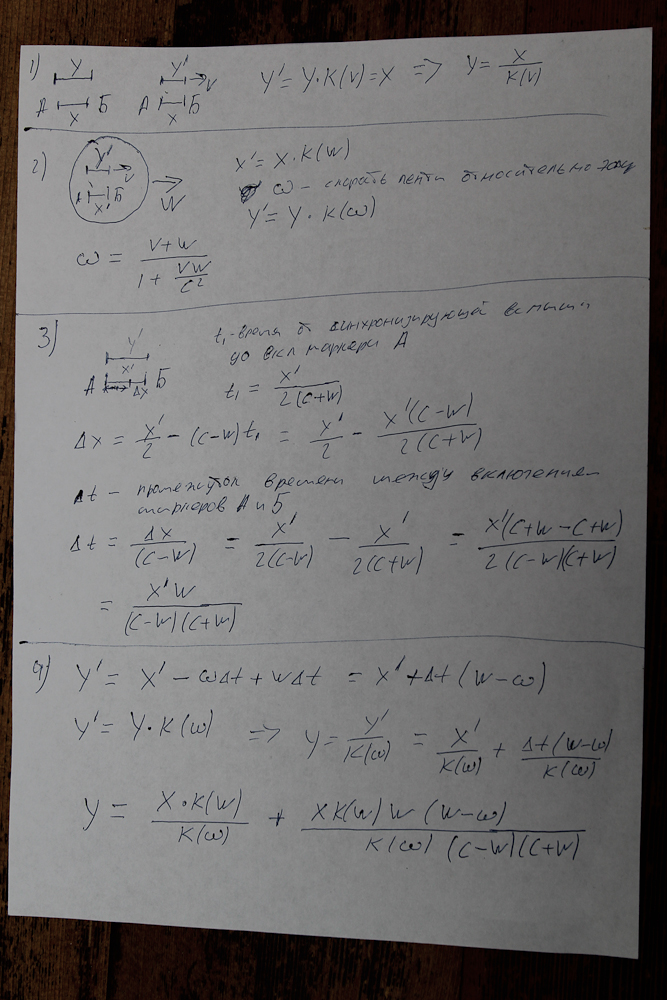 1) Y Y' V Y' = Y·K(V) = X => Y = X / K(V)
А X Б А X Б
2) Y' V А X' Б W X' = X·K(W)
ω – скорость ленты относительно эфира
Y' = Y·K(ω)
ω = (V+W) / (1 + VW/C²)
3) Y' X' А Δx Б t₁-время от синхронизирующей вспышки
до вкл маркера А
t₁ = X' / 2(C+W)
Δx = X'/2 – (C-W)t₁ = X'/2 – X'(C-W) / 2(C+W)
Δt – промежуток времени между включением
маркеров А и Б
Δt = Δx / (C-W) = X' / 2(C-W) – X' / 2(C+W) = X'(C+W-C+W) / 2(C-W)(C+W)
= X'W / (C-W)(C+W)
4) Y' = X' – ωΔt + WΔt = X' + Δt(W-ω)
Y' = Y·K(ω) => Y = Y' / K(ω) = X' / K(ω) + Δt(W-ω) / K(ω)
Y = X·K(W) / K(ω) + XK(W)W(W-ω) / K(ω)(C-W)(C+W)